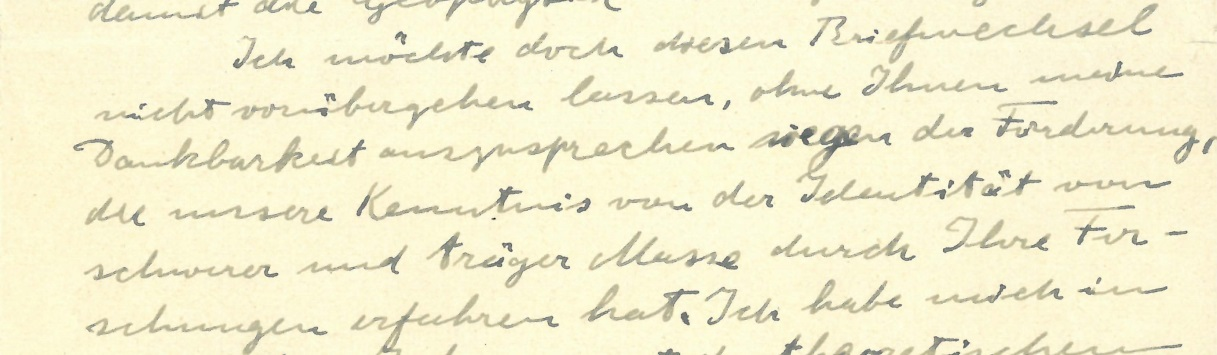 damit die
Ich möchte doch diesen Briefwechsel
nicht vorübergehen lassen, ohne Ihnen meine
Dankbarkeit auszusprechen wegen der Förderung,
die unsere Kenntnis von der Identität von
schwerer und träger Masse durch Ihre For-
schungen erfahren hat. Ich habe mich in
theoretischen